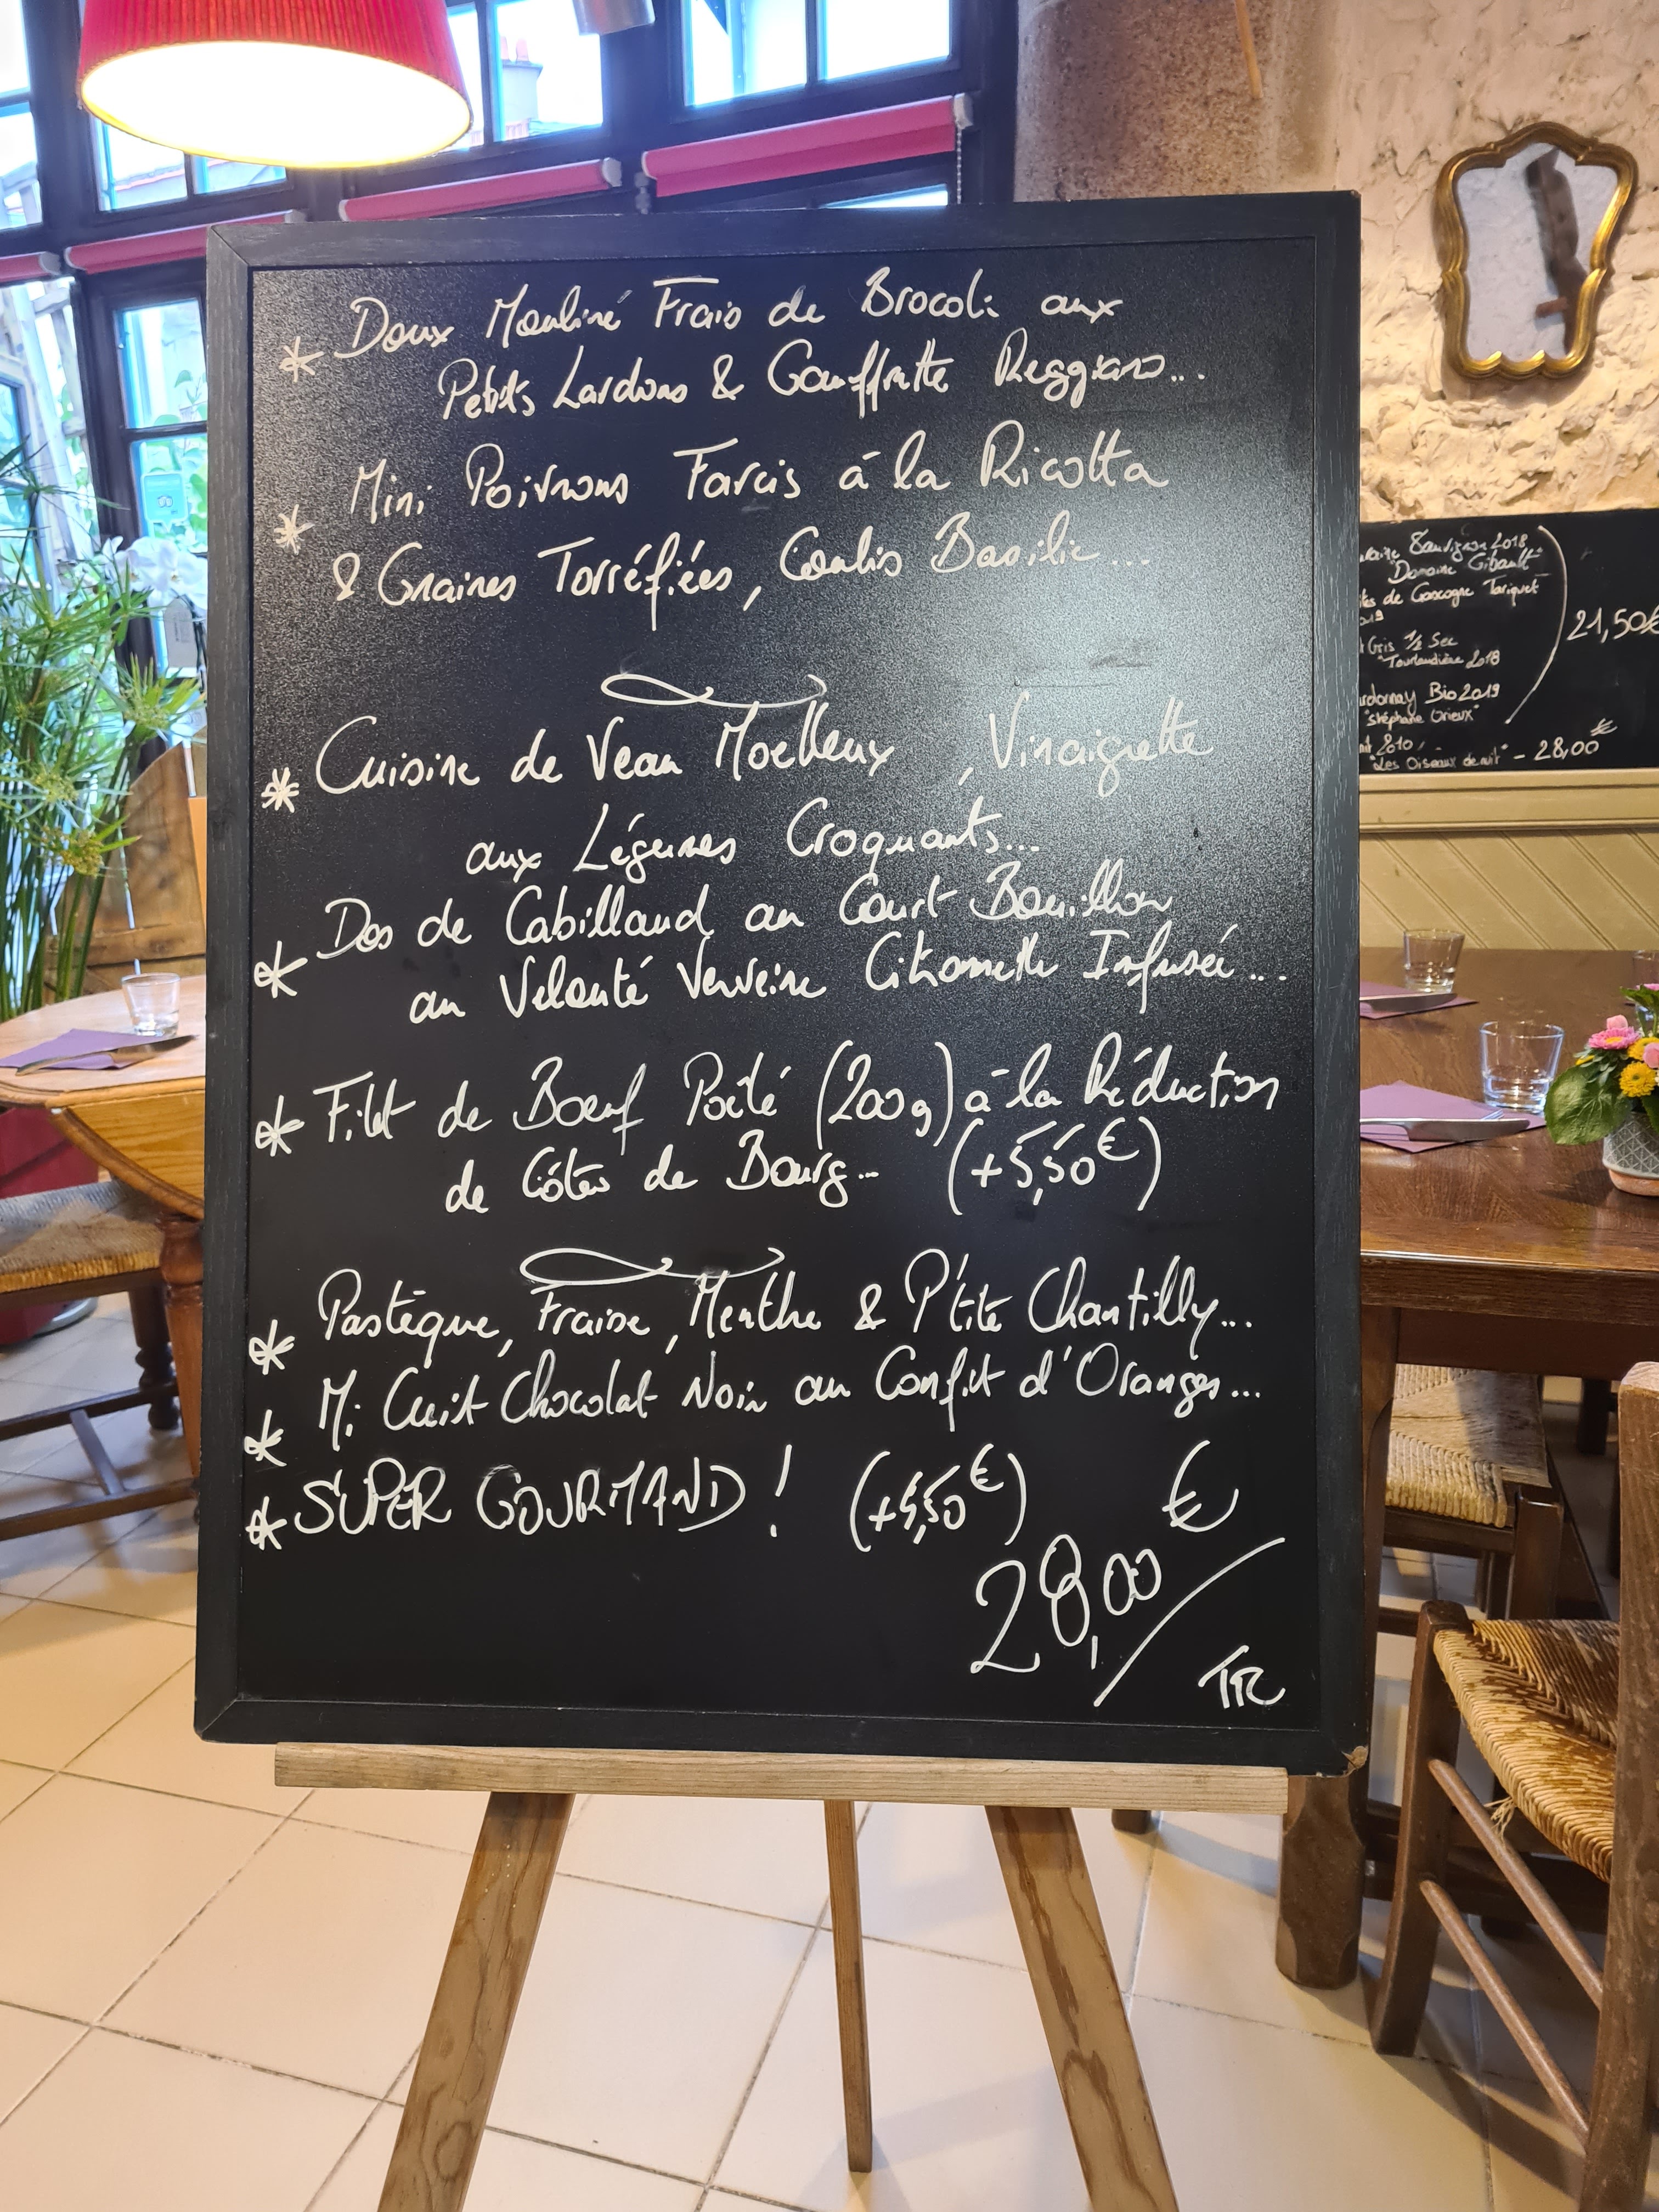 * Doux Mouliné Frais de Brocoli aux
Petits Lardons & Gauffrette Reggiano...
* Mini Poivrons Farcis à la Ricotta
& Graines Torréfiées, Coulis Basilic...
* Cuisine de Veau Moelleux, Vinaigrette
aux Légumes Croquants...
* Dos de Cabillaud au Court Bouillon
au Velouté Verveine Citronnelle Infusée...
* Filet de Boeuf Poêlé (200g) à la Réduction
de Côtes de Bourg... (+5,50€)
* Pastèque, Fraise, Menthe & P'tite Chantilly...
* Mi Cuit Chocolat Noir au Confit d'Oranges...
* SUPER GOURMAND! (+5,50€)
28,00 €
Sauvignon 2018
"Domaine Gibault"
de Gascogne Tariquet
Gris 1/2 Sec
"Tourlaudière 2018
21,50€
Bio 2019
"Stéphane Orieux"
2010
"Les Oiseaux de nuit" - 28,00€